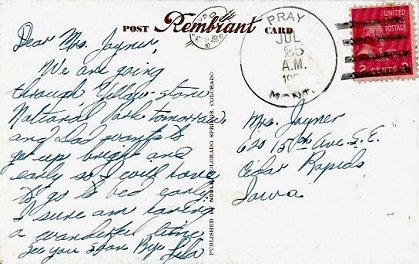 POST Rembrant CARD
PRAY
JUL
25
A.M.
MONT.
UNITED
POSTAGE
2 CENTS 2
Dear Mrs. Joyner,
We are going
through Yellow-stone
National Park tomorrow,
and dad wants to
get up bright and
early so I will have
to go to bed early.
I sure am having
a wonderful time
See you soon Bye
PUBLISHED BY NOBLE, COLORADO SPRINGS, COLORADO
Mrs. Joyner
15th Ave S.E.
Cedar Rapids
Iowa